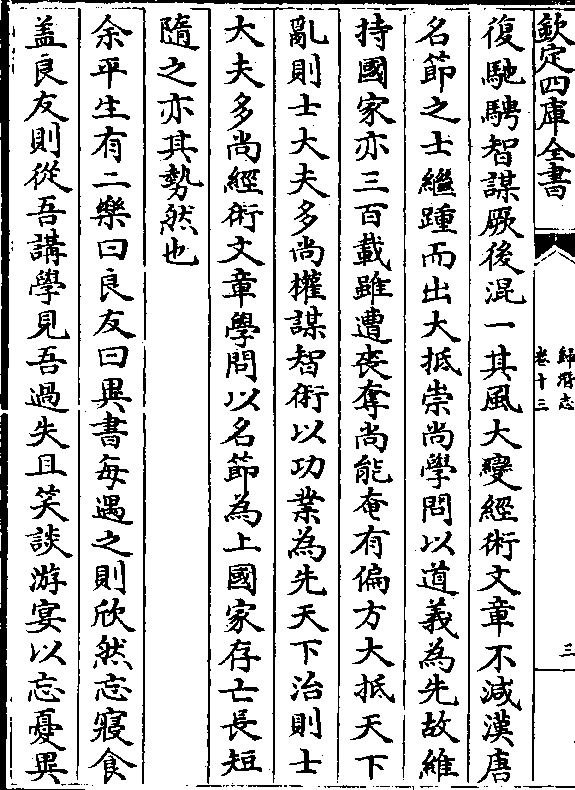 欽定四庫全書
歸潛志
卷十三
三
復馳騁智謀厥後混一其風大變經術文章不減漢唐
名節之士繼踵而出大抵崇尚學問以道義為先故維
持國家亦三百載雖遭喪奪尚能奄有偏方大抵天下
亂則士大夫多尚權謀智術以功業為先天下治則士
大夫多尚經術文章學問以名節為上國家存亡長短
隨之亦其勢然也
余平生有二樂曰良友曰異書每遇之則欣然忘寢食
盖良友則從吾講學見吾過失且笑談游宴以忘憂異